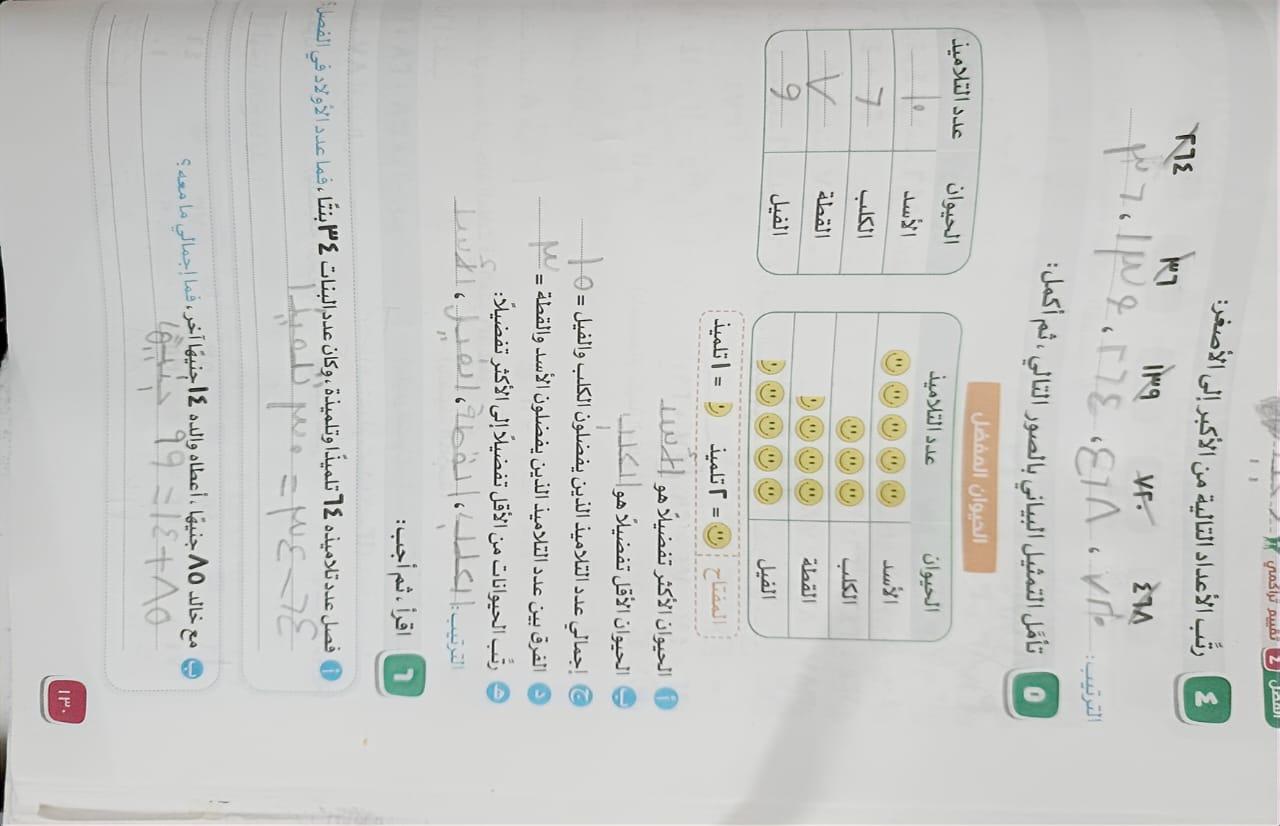 ٤ تقييم تراكمي
٤ رتِّب الأعداد التالية من الأكبر إلى الأصغر:
٤٦٨ ٧٣٠ ١٣٩ ٣٦ ٢٦٤
الترتيب: ٧٣٠، ٤٦٨، ٢٦٤، ١٣٩، ٣٦
٥ تأمَّل التمثيل البياني بالصور التالي، ثم أكمل:
الحيوان المفضل
الحيوان عدد التلاميذ
الأسد
الكلب
القطة
الفيل
المفتاح: = ٢ تلميذ = ١ تلميذ
الحيوان عدد التلاميذ
الأسد ١٠
الكلب ٦
القطة ٧
الفيل ٩
أ الحيوان الأكثر تفضيلًا هو الأسد
ب الحيوان الأقل تفضيلًا هو الكلب
ج إجمالي عدد التلاميذ الذين يفضلون الكلب والفيل = ١٥
د الفرق بين عدد التلاميذ الذين يفضلون الأسد والقطة = ٣
هـ رتِّب الحيوانات من الأقل تفضيلًا إلى الأكثر تفضيلًا:
الترتيب: الكلب، القطة، الفيل، الأسد
٦ اقرأ، ثم أجب:
أ فصل عدد تلاميذه ٦٤ تلميذًا وتلميذة، وكان عدد البنات ٣٤ بنتًا، فما عدد الأولاد في الفصل؟
٦٤-٣٤ = ٣٠ تلميذًا
ب مع خالد ٨٥ جنيهًا، أعطاه والده ١٤ جنيهًا آخر، فما إجمالي ما معه؟
٨٥+١٤ = ٩٩ جنيهًا
١٣٠